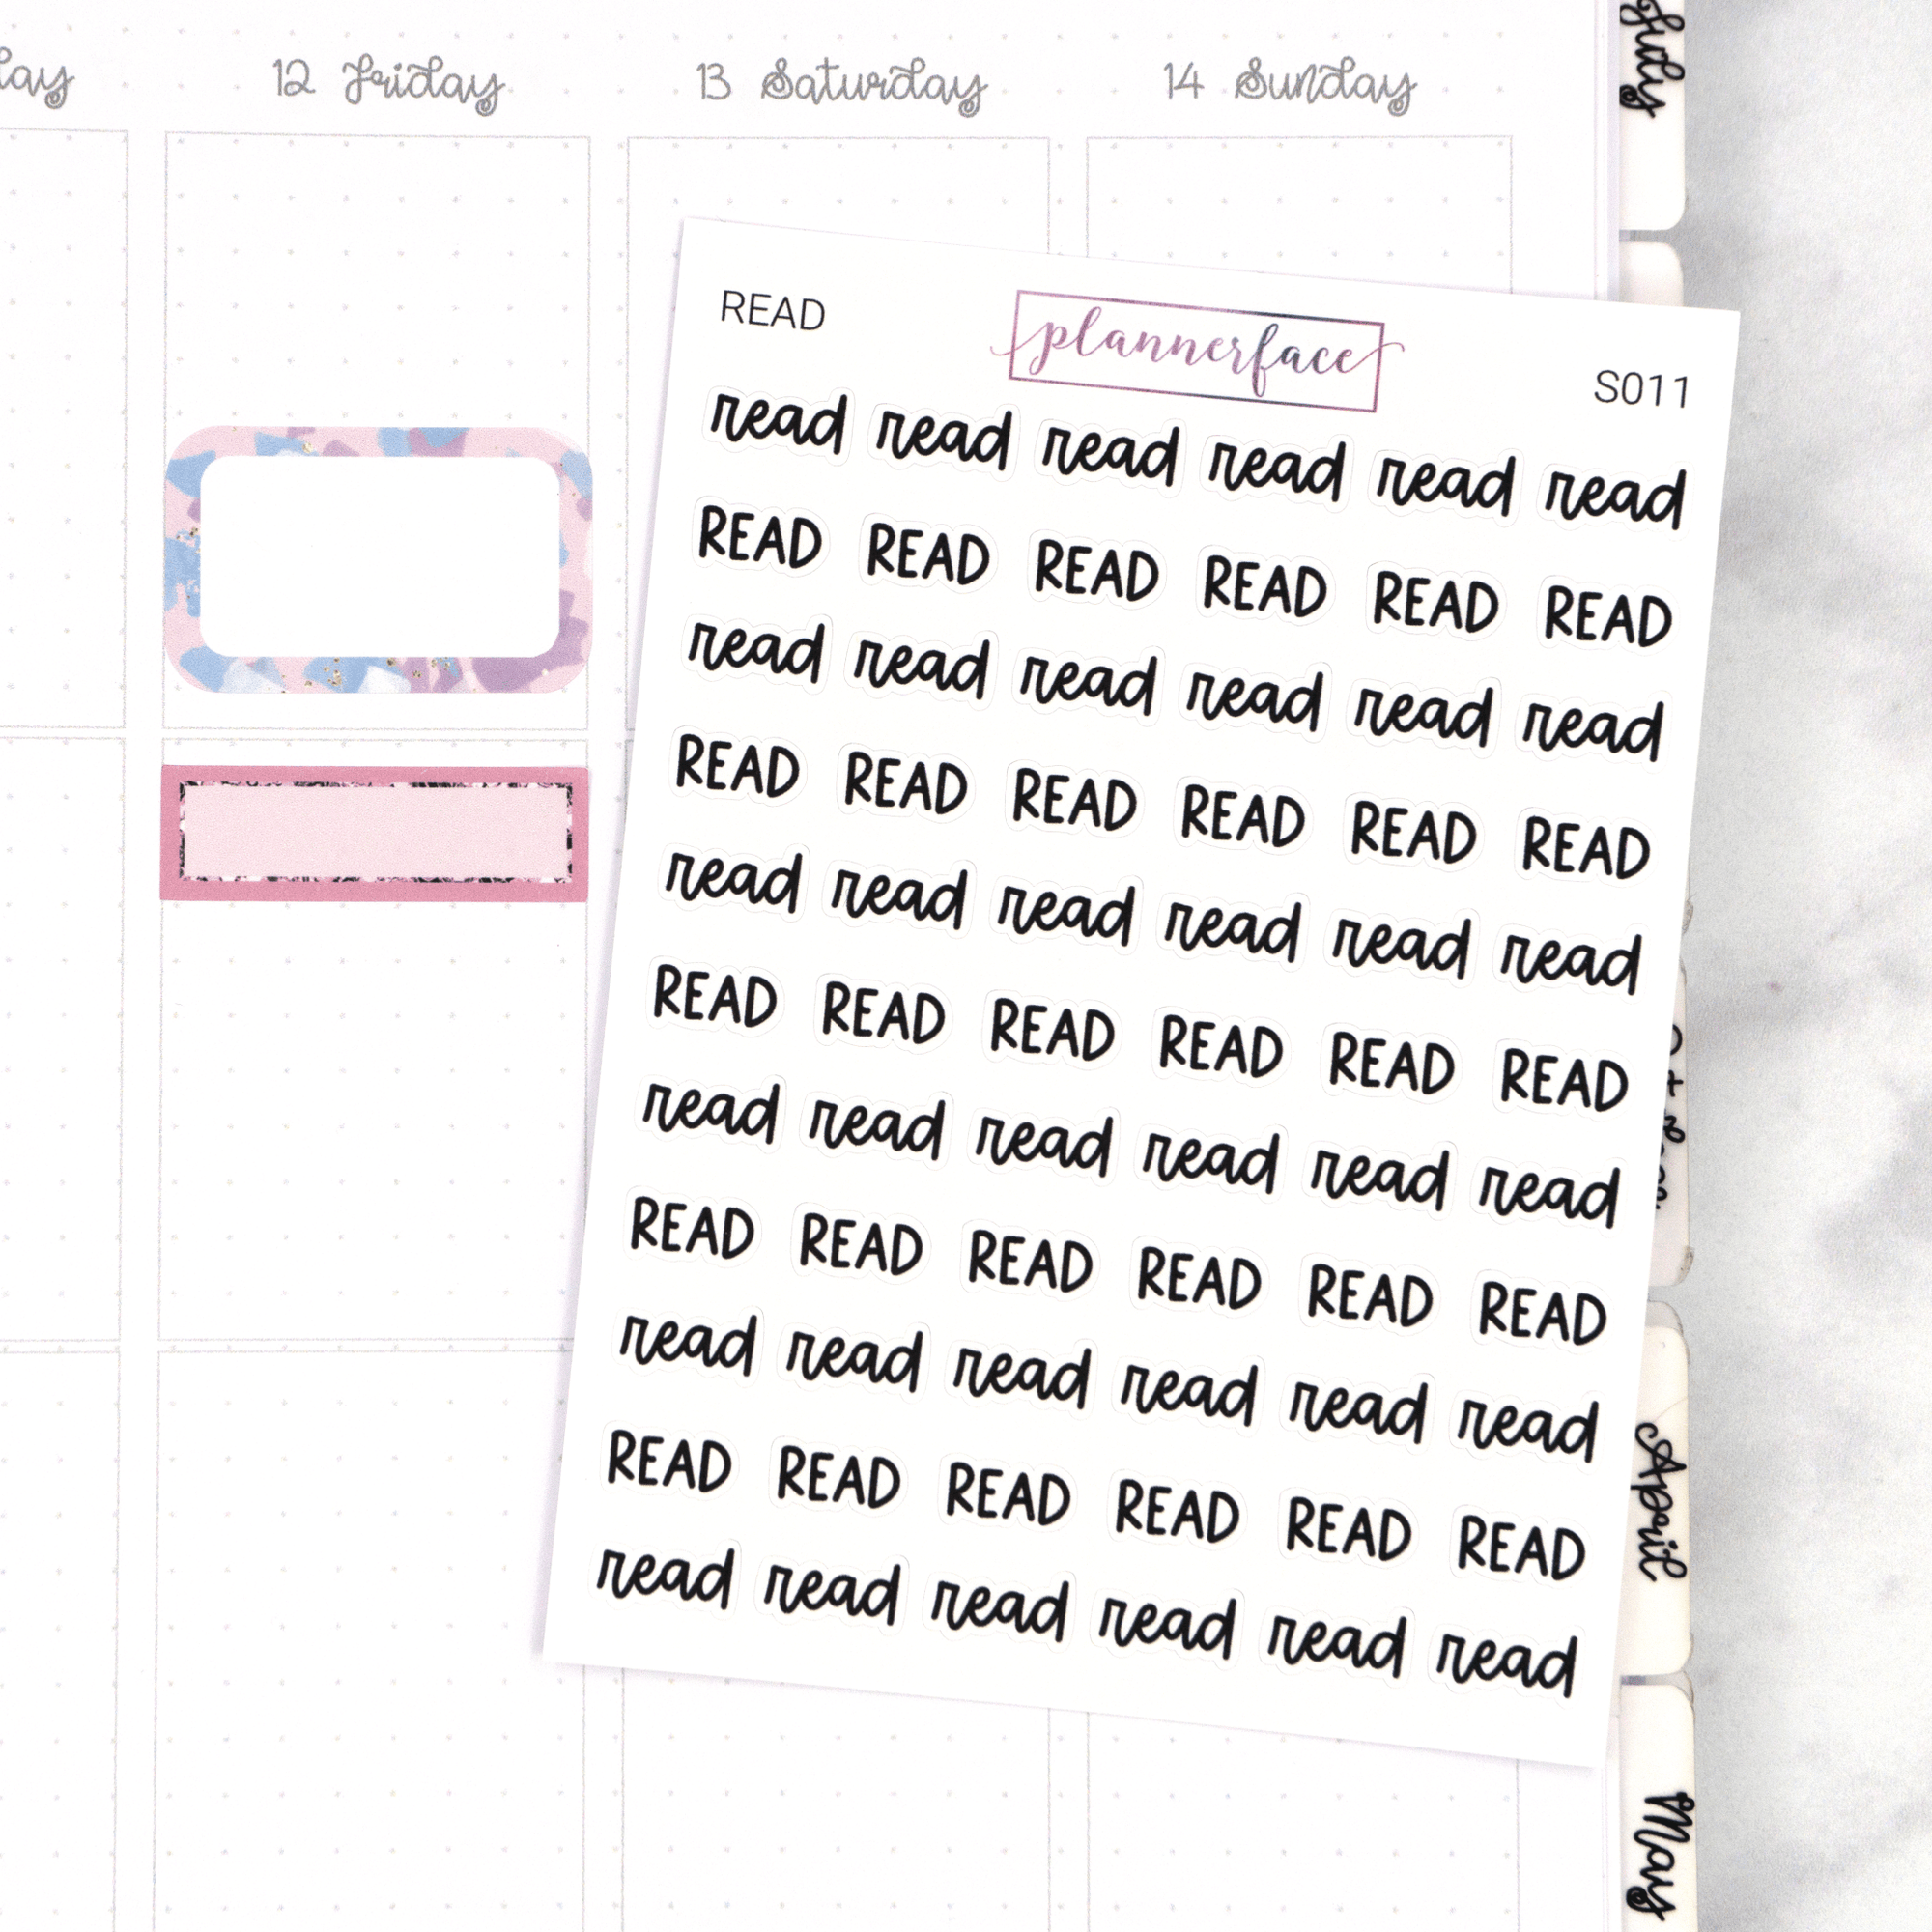 12 Friday 13 Saturday 14 Sunday
July
READ plannerface S011
read read read read read read
READ READ READ READ READ READ
read read read read read read
READ READ READ READ READ READ
read read read read read read
READ READ READ READ READ READ
read read read read read read
READ READ READ READ READ READ
read read read read read read
READ READ READ READ READ READ
read read read read read read
April
May